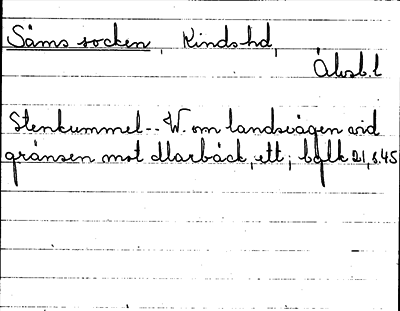 Säms socken, Kinds hd,
Älvsb.l
Stenkummel -- W. om landsvägen vid
gränsen mot Marbäck, ett; bqlk 21, s.45